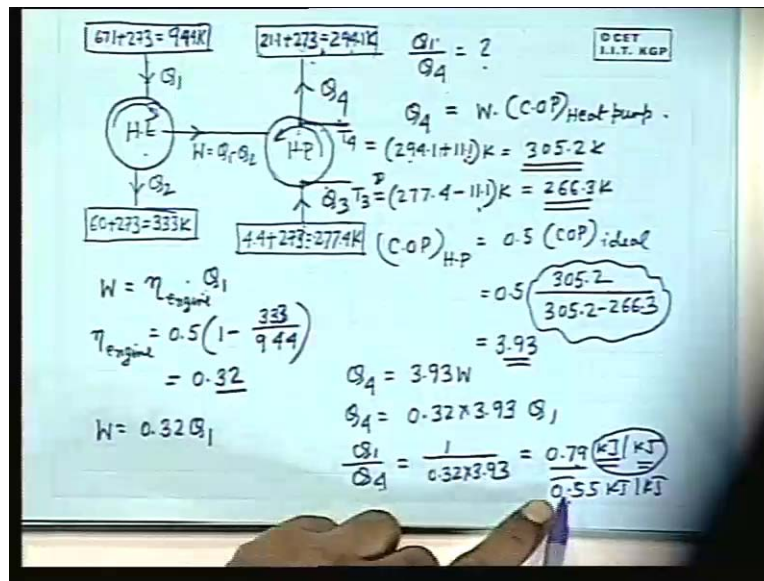 671+273=944K
21.1+273=294.1K
Q1/Q4 = ?
© CET
I.I.T. KGP
Q1
Q4
Q4 = W. (C.O.P) Heat pump.
H.E
W=Q1-Q2
H.P
T4 = (294.1+11.1)K = 305.2K
Q2
Q3
T3 = (277.4-11.1)K = 266.3K
60+273=333K
4.4+273=277.4K
(C.O.P)H.P = 0.5 (COP)ideal
W = ηEngine Q1
= 0.5 (305.2 / 305.2-266.3)
ηEngine = 0.5 (1 - 333/944)
= 3.93
= 0.32
Q4 = 3.93W
W = 0.32Q1
Q4 = 0.32×3.93 Q1
Q1/Q4 = 1/0.32×3.93 = 0.79 KJ/KJ
0.55 KJ/KJ